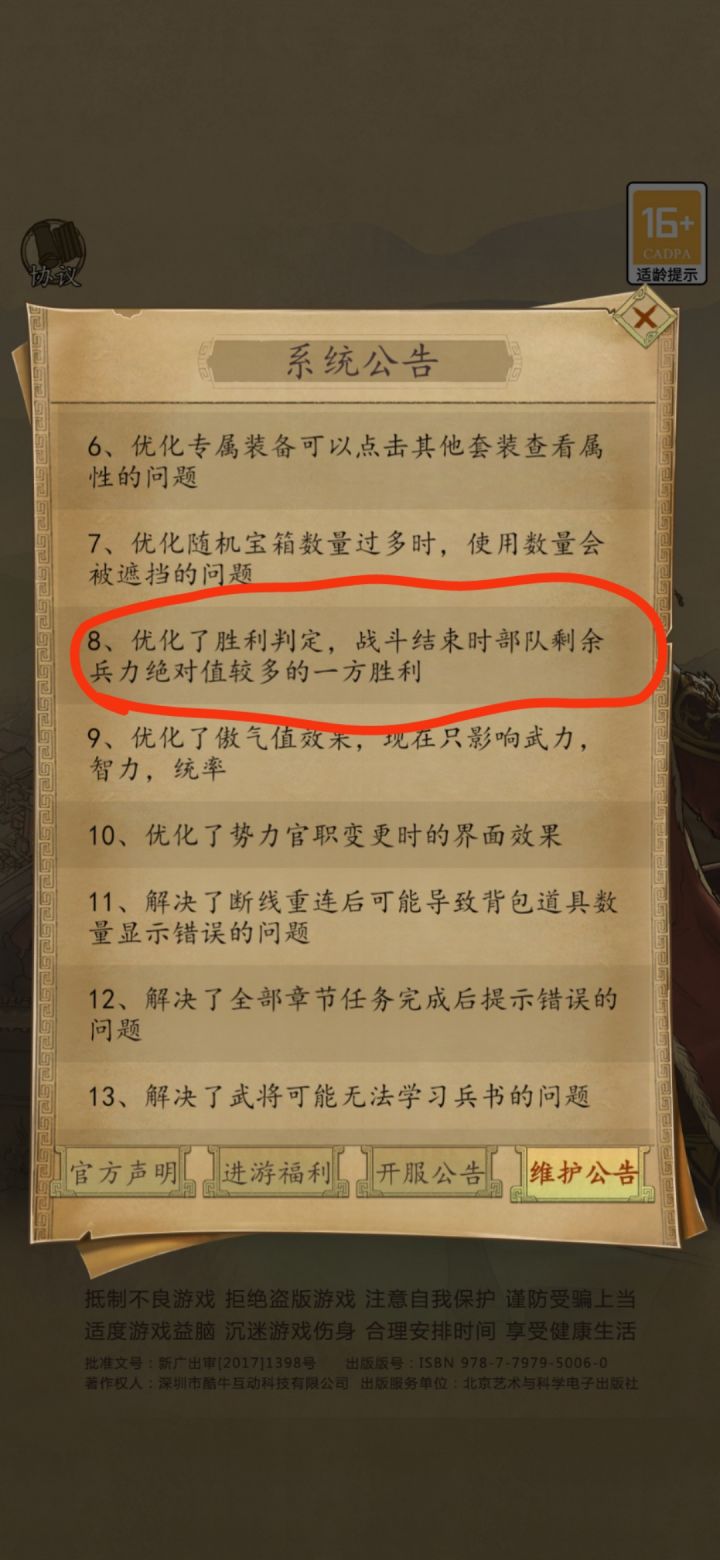 协议
16+
CADPA
适龄提示
系统公告
6、优化专属装备可以点击其他套装查看属
性的问题
7、优化随机宝箱数量过多时，使用数量会
被遮挡的问题
8、优化了胜利判定，战斗结束时部队剩余
兵力绝对值较多的一方胜利
9、优化了傲气值效果，现在只影响武力，
智力，统率
10、优化了势力官职变更时的界面效果
11、解决了断线重连后可能导致背包道具数
量显示错误的问题
12、解决了全部章节任务完成后提示错误的
问题
13、解决了武将可能无法学习兵书的问题
官方声明 进游福利 开服公告 维护公告
抵制不良游戏 拒绝盗版游戏 注意自我保护 谨防受骗上当
适度游戏益脑 沉迷游戏伤身 合理安排时间 享受健康生活
批准文号：新广出审[2017]1398号 出版版号：ISBN 978-7-7979-5006-0
著作权人：深圳市酷牛互动科技有限公司 出版服务单位：北京艺术与科学电子出版社